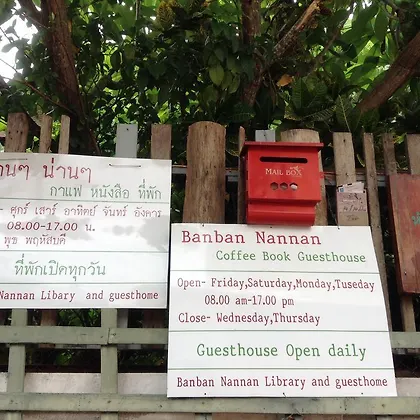 านๆ น่านๆ
กาแฟ หนังสือ ที่พัก
ศุกร์ เสาร์ อาทิตย์ จันทร์ อังคาร
08.00-17.00 น.
พุธ พฤหัสบดี
ที่พักเปิดทุกวัน
Nannan Libary and guesthome
MAIL BOX
Banban Nannan
Coffee Book Guesthouse
Open- Friday,Saturday,Monday,Tuseday
08.00 am-17.00 pm
Close- Wednesday,Thursday
Guesthouse Open daily
Banban Nannan Library and guesthome